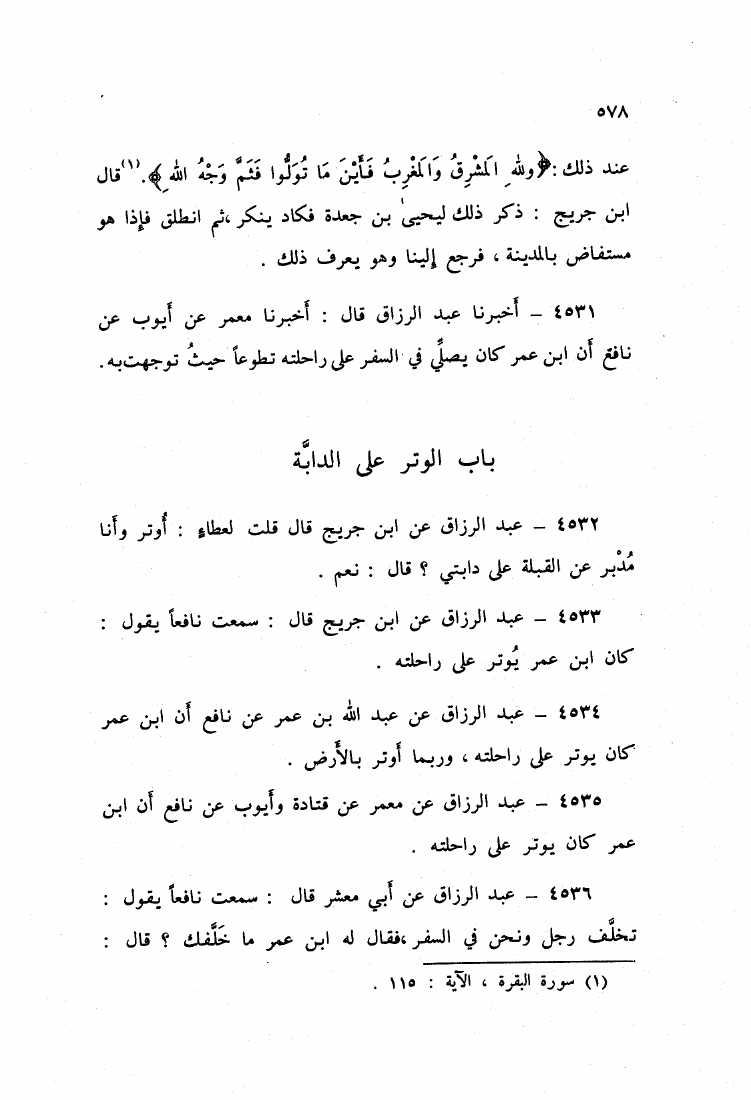 ٥٧٨
عند ذلك : ﴿ولله الْمَشْرِقُ وَالْمَغْرِبُ فَأَيْنَ مَا تُوَلُّوا فَثَمَّ وَجْهُ اللهِ﴾.(١) قال
ابن جريج : ذكر ذلك ليحيىٰ بن جعدة فكاد ينكر ،ثم انطلق فإذا هو
مستفاض بالمدينة ، فرجع إلينا وهو يعرف ذلك .
٤٥٣١ – أخبرنا عبد الرزاق قال : أخبرنا معمر عن أيوب عن
نافع أن ابن عمر كان يصلِّي في السفر على راحلته تطوعاً حيثُ توجهت به.
باب الوتر على الدابَّة
٤٥٣٢ – عبد الرزاق عن ابن جريج قال قلت لعطاءٍ : أُوتر وأنا
مُدْبر عن القبلة على دابتي ؟ قال : نعم .
٤٥٣٣ – عبد الرزاق عن ابن جريج قال : سمعت نافعاً يقول :
كان ابن عمر يُوتر على راحلته .
٤٥٣٤ – عبد الرزاق عن عبد الله بن عمر عن نافع أن ابن عمر
كان يوتر على راحلته ، وربما أوتر بالأرض .
٤٥٣٥ – عبد الرزاق عن معمر عن قتادة وأيوب عن نافع أن ابن
عمر كان يوتر على راحلته .
٤٥٣٦ – عبد الرزاق عن أبي معشر قال : سمعت نافعاً يقول :
تخلَّف رجل ونحن في السفر ،فقال له ابن عمر ما خَلَّفك ؟ قال :
(١) سورة البقرة ، الآية : ١١٥ .